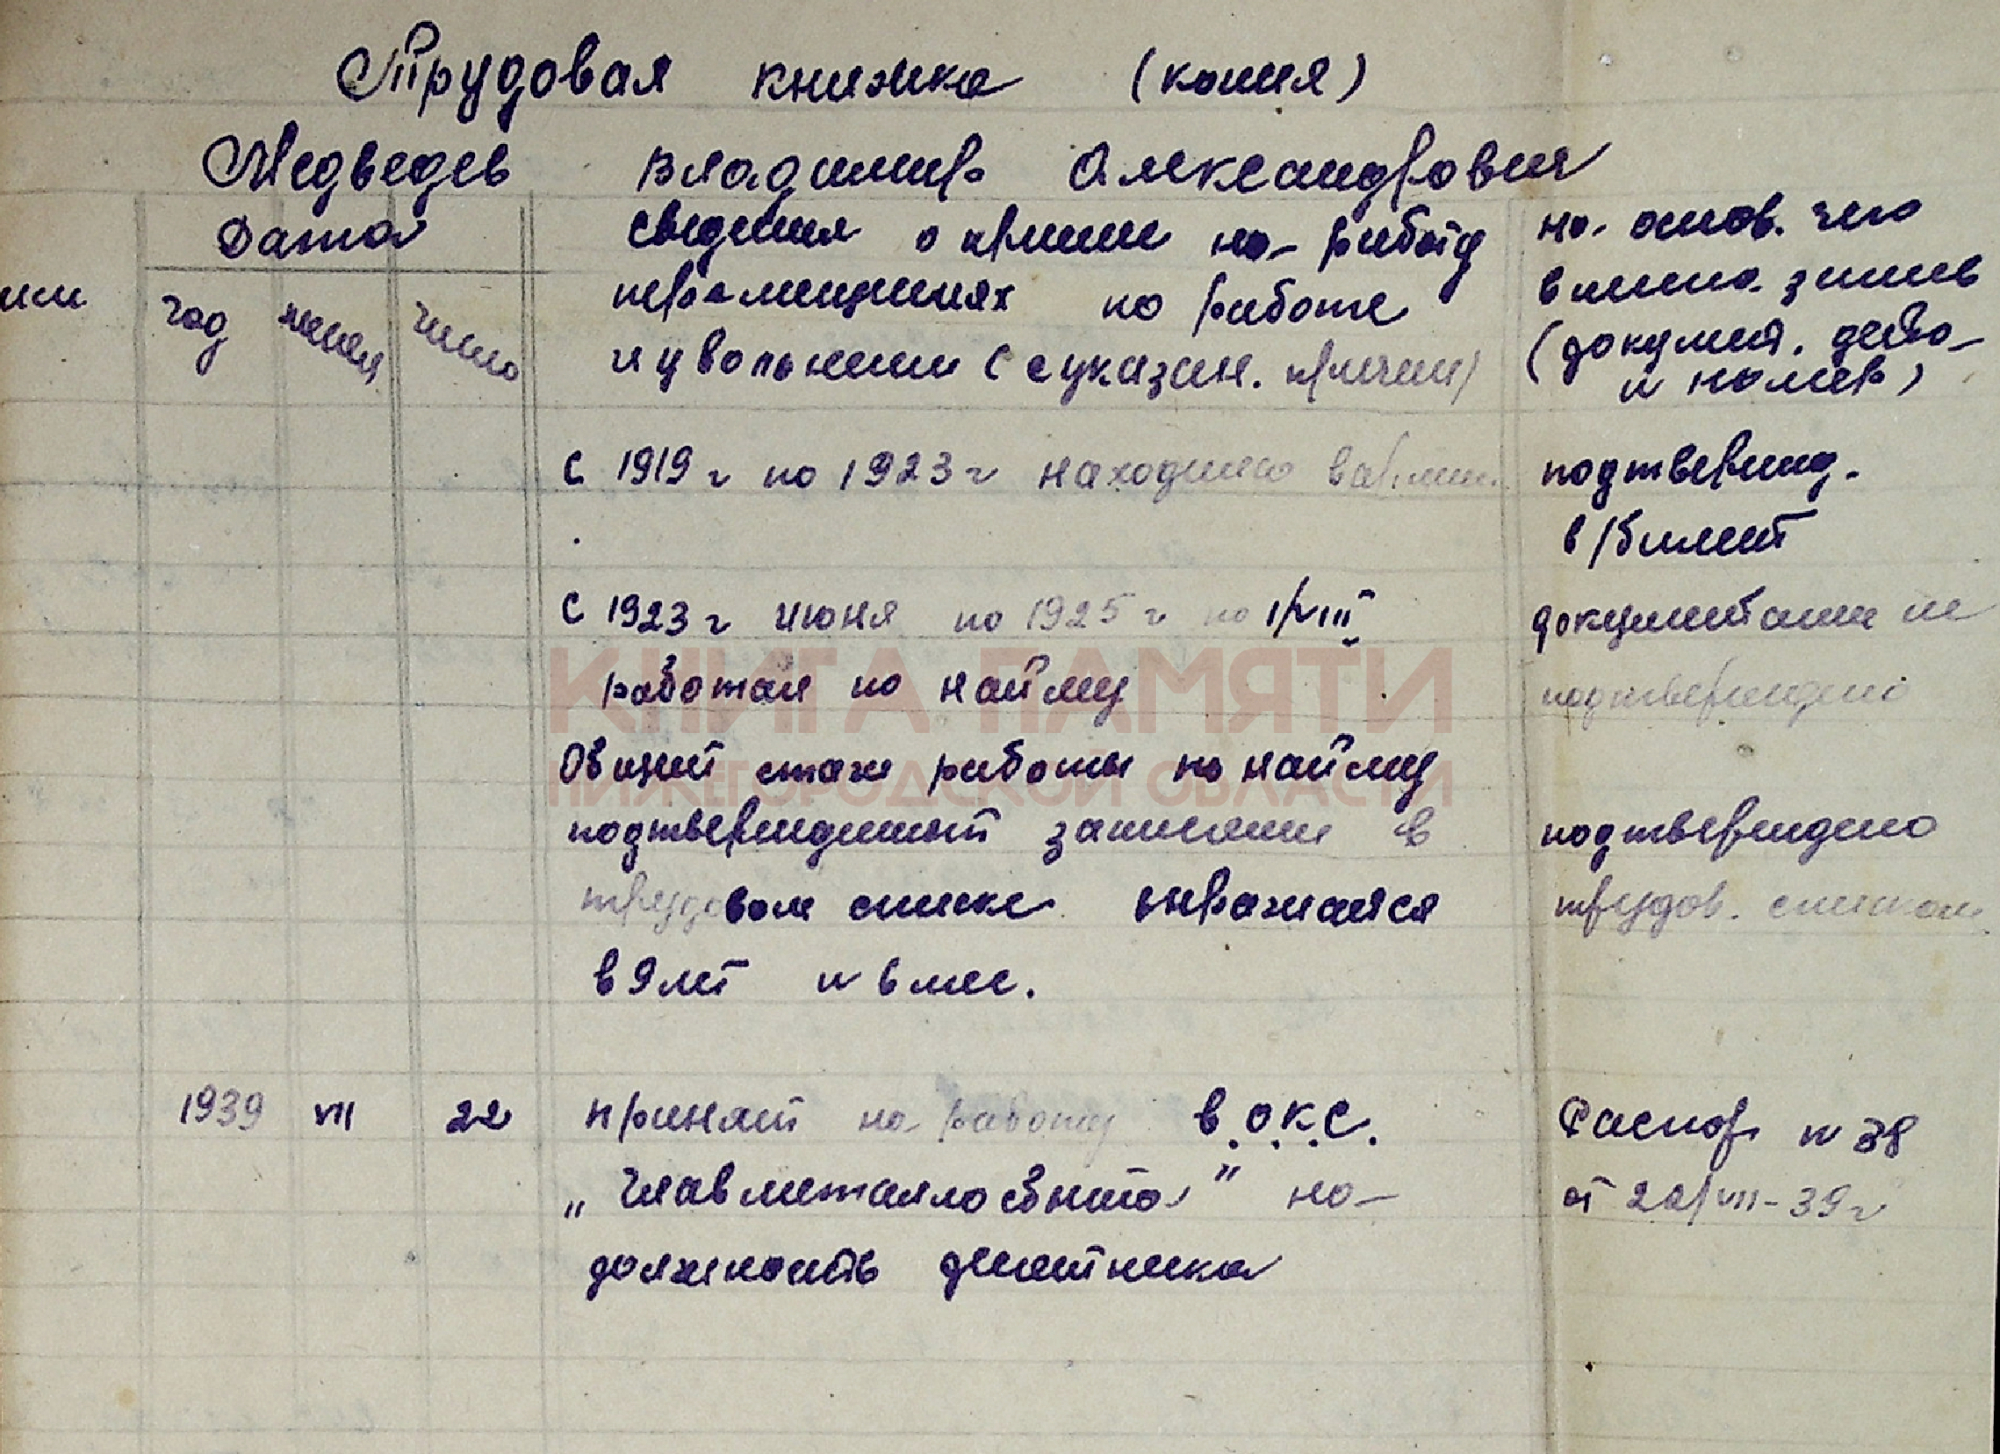 Трудовая книжка (копия)
Медведев Владимир Александрович
Дата
год месяц число
сведения о приеме на работу
перемещениях по работе
и увольнении (с указан. причин)
на основ. чего
внесена запись
(докумен. дата
и номер)
С 1919 г по 1923 г находился в армии
подтвержд.
в/билет
С 1923 г июня по 1925 г по 1/VIII
работал по найму
документами не
подтверждено
КНИГА ПАМЯТИ
НИЖЕГОРОДСКОЙ ОБЛАСТИ
Общий стаж работы по найму
подтвержденный записями в
трудовом списке выражается
в 9 лет и 6 мес.
подтверждено
трудов. списком
1939 VII 22 принят на работу в О.К.С.
„Главметаллосбыта" на
должность десятника
Распор № 38
от 22/VII-39 г